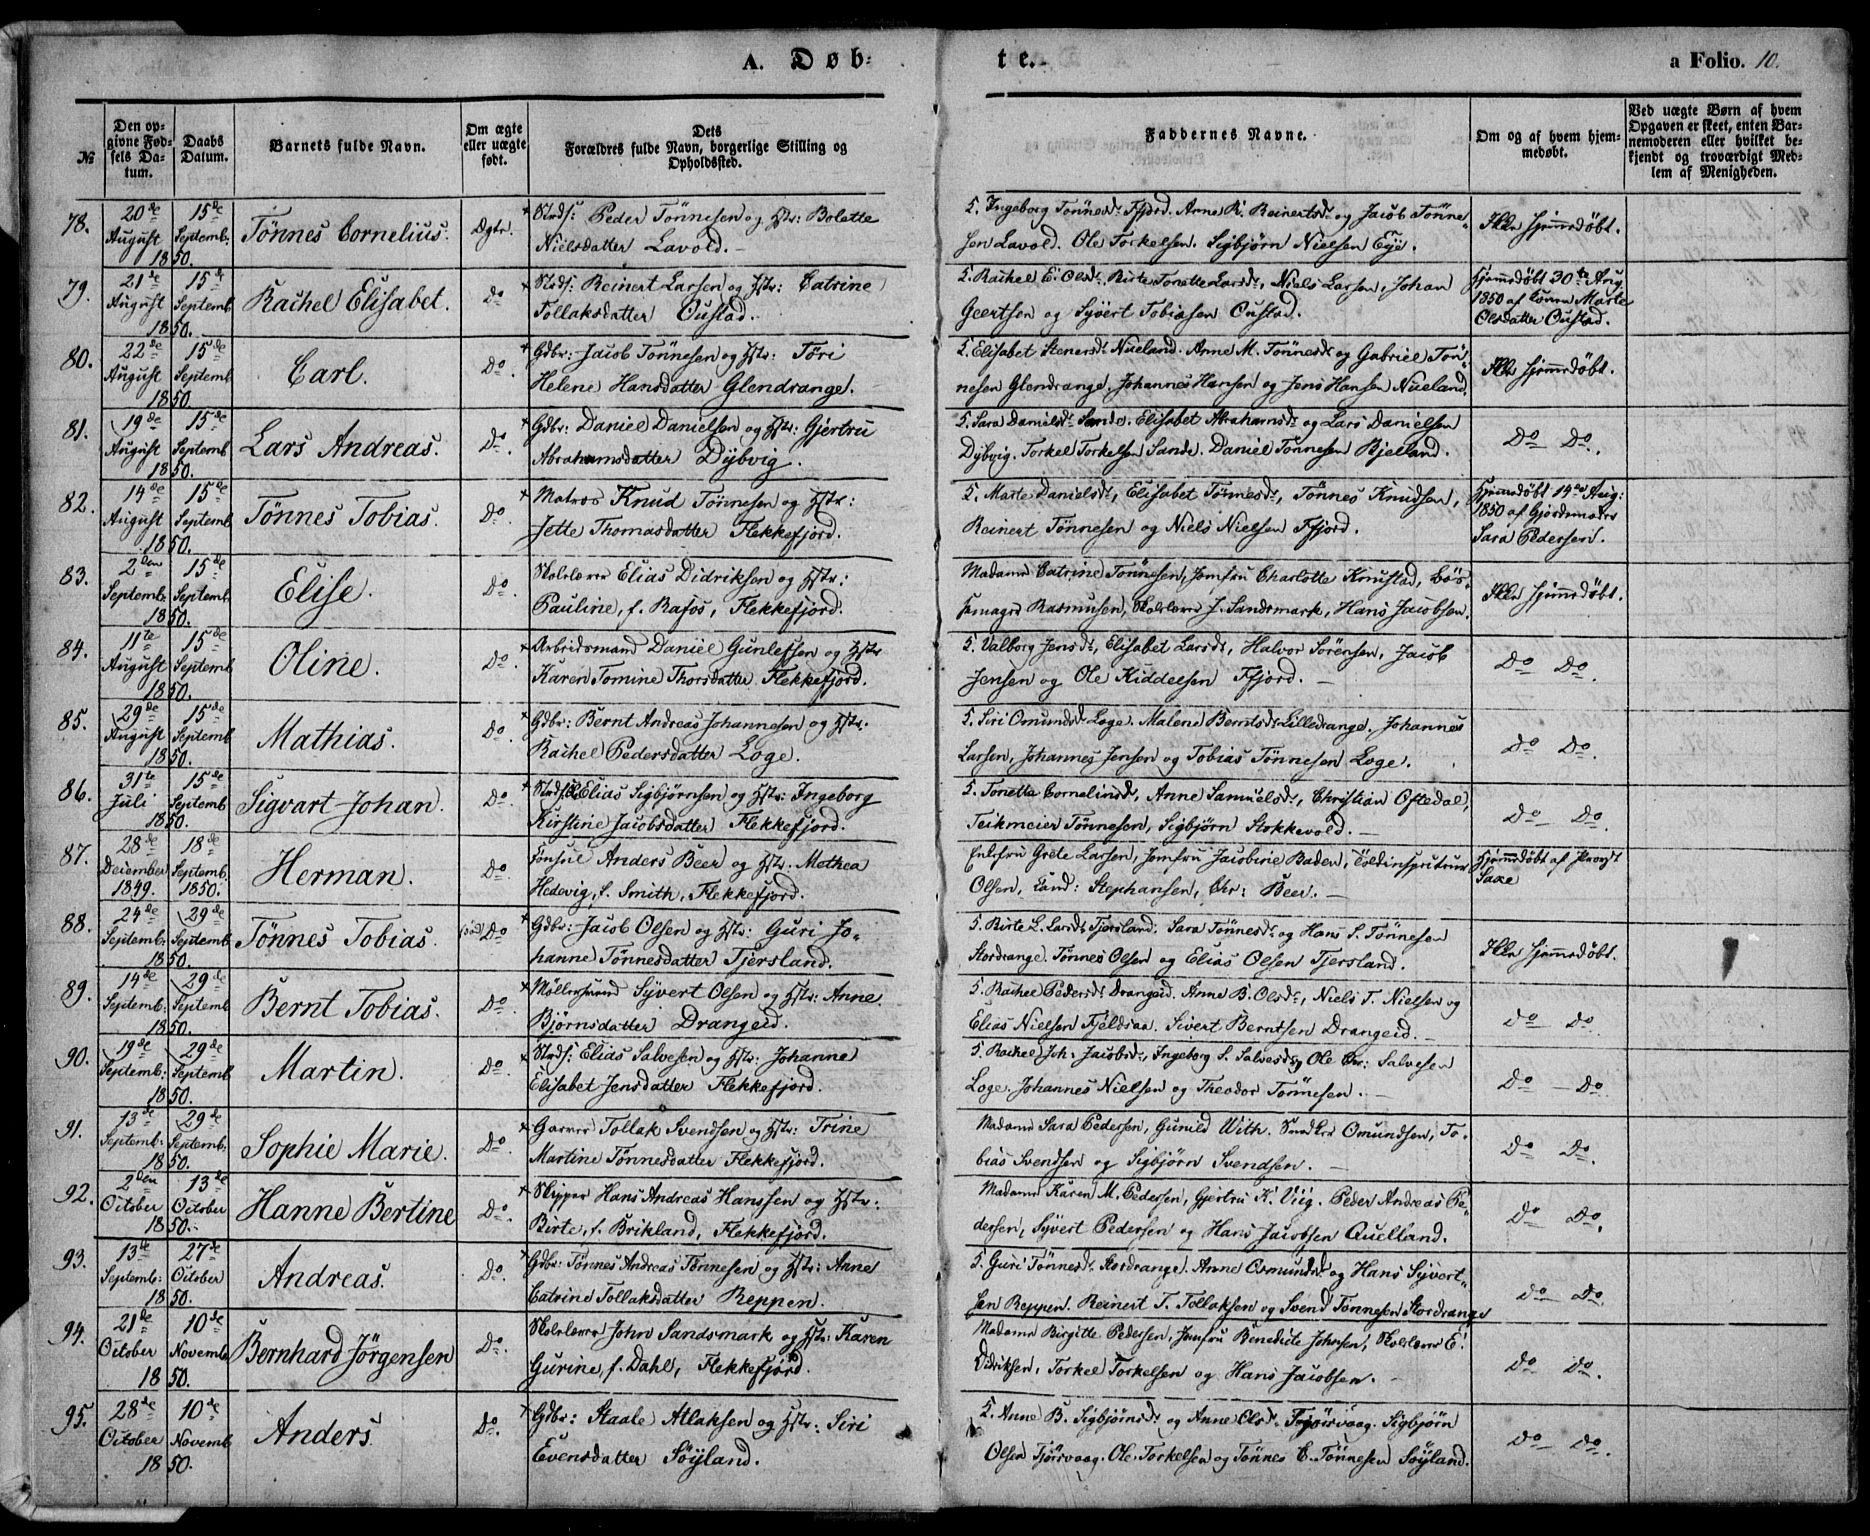 A. Døb-
te.
a Folio. 10.
№
Den op-
givne Fød-
sels Da-
tum.
Daabs
Datum.
Barnets fulde Navn.
Om ægte
eller uægte
født.
Dets
Forældres fulde Navn, borgerlige Stilling og
Opholdssted.
Faddernes Navne.
Om og af hvem hjem-
medøbt.
Ved uægte Børn af hvem
Opgaven er skeet, enten Bar-
nemoderen eller hvilket be-
kjendt og troværdigt Med-
lem af Menigheden.
78. 20de August 1850. 15de Septemb. Tönnes Cornelius. Ægte. Strds: Peder Tönnesen og Hstr: Bolette
Nielsdatter Lavold.
5. Ingeborg Tönnesd. Ffjord. Arne R. Reinertsd. og Jacob Tönne-
sen Lavold. Ole Torkelsen. Sigbjörn Nielsen Eye.
Ikke hjemmedøbt.
79. 21de August 1850. 15de Septemb. Rachel Elisabet. Do Strds: Reinert Larsen og Hstr: Catrine
Tollaksdatter Oustad.
5. Rachel E. Olsd. Birte Tonette Larsd., Niels Larsen, Johan
Geertsen og Syvert Tobiasen Oustad.
Hjemmedöbt 30te Aug.
1850 af Konen Marte
Olsdatter Oustad.
80. 22de August 1850. 15de Septemb. Carl. Do. Gdbr: Jacob Tönnesen og Hstr: Töri
Helene Hansdatter Glendrange.
5. Elisabet Stenersd. Nueland. Anne M. Tönnesd. og Gabriel Tön-
nesen Glendrange. Johannes Hansen og Jens Hansen Nueland.
Ikke hjemmedøbt.
81. 19de August 1850. 15de Septemb. Lars Andreas. Do. Gdbr: Daniel Danielsen og Hstr: Gjertru
Abrahamsdatter Dybvig.
5. Sara Danielsd. Sande. Elisabet Abrahamsd. og Lars Danielsen
Dybvig. Torkel Torkelsen Sande. Daniel Tönnesen Bjelland.
Do Do.
82. 14de August 1850. 15de Septemb. Tönnes Tobias. Do. Matros Knud Tönnesen og Hstr:
Jette Thomasdatter Flekkefjord.
5. Marte Danielsd., Elisabet Tönnesd., Tönnes Knudsen,
Reinert Tönnesen og Niels Nielsen Ffjord.
Hjemmedöbt 14de Aug:
1850 af Gjordemoder
Sara Pedersen.
83. 2den Septemb. 1850. 15de Septemb. Elise. Do. Skolelærer Elias Didriksen og Hstr:
Pauline, f. Rafos, Flekkefjord.
Madame Catrine Tönnesen, Jomfru Charlotte Knustad, Bös-
semager Rasmusen, Skolelærer J. Sandsmark, Hans Jacobsen.
Ikke hjemmedöbt.
84. 11te August 1850. 15de Septemb. Oline. Do. Arbeidsmand Daniel Gunlefsen og Hstr
Karen Tomine Thorsdatter Flekkefjord.
5. Valborg Jensd., Elisabet Larsd., Halvor Sörensen, Jacob
Jensen og Ole Kiddelsen Ffjord.
Do Do.
85. 29de August 1850. 15de Septemb. Mathias. Do. Gdbr: Bernt Andreas Johannesen og Hstr.
Rachel Pedersdatter Loge.
5. Siri Omundsd. Loge. Malene Berntsd. Lilledrange. Johannes
Larsen, Johannes Jensen og Tobias Tönnesen Loge.
Do Do.
86. 31te Juli 1850. 15de Septemb. Sigvart Johan. Do. Strds: Elias Sigbjörnsen og Hstr: Ingeborg
Kirstine Jacobsdatter Flekkefjord.
5. Tonette Corneliusd., Anne Samuelsd., Christian Oftedal,
Teikmeier Tönnesen, Sigbjörn Stokkevold.
Do Do.
87. 28de December 1849. 18de Septemb. 1850. Herman. Do. Consul Anders Beer og Hstr. Mathea
Hedevig, f. Smith, Flekkefjord.
Enkefru Grete Larsen, Jomfru Jacobine Baden, Toldinspecteur
Olsen, Cand: Stephansen, Chr: Beer.
Hjemmedöbt af Provst
Saxe
88. 24de Septemb. 1850. 29de Septemb. Tönnes Tobias. Do Gdbr: Jacob Olsen og Hstr: Guri Jo-
hanne Tönnesdatter Tjersland.
5. Birte L. Larsd. Tjersland. Sara Tönnesd. og Hans S. Tönnesen
Stordrange. Tönnes Olsen og Elias Olsen Tjersland.
Ikke hjemmedöbt.
89. 14de Septemb. 1850. 29de Septemb. Bernt Tobias. Do. Möllersvend Syvert Olsen og Hstr: Anne
Björnsdatter Drangeid.
5. Rachel Pedersd. Drangeid. Anne B. Olsd., Niels T. Nielsen og
Elias Nielsen Fjeldsaa. Sivert Berntsen Drangeid.
Do Do.
90. 19de Septemb. 1850. 29de Septemb Martin. Do. Strds: Elias Salvesen og Hstr: Johanne
Elisabet Jensdatter Flekkefjord.
5. Rachel Joh. Jacobsd., Ingeborg S. Salvesd. og Ole Chr: Salvesen
Loge. Johannes Nielsen og Theodor Tönnesen.
Do Do.
91. 13de Septemb. 1850. 29de Septemb. Sophie Marie. Do. Garver Tollak Svendsen og Hstr: Trine
Martine Tönnesdatter Flekkefjord.
Madame Sara Pedersen, Gunild With. Snedker Omundsen, To-
bias Svendsen og Sigbjörn Svendsen.
Do Do.
92. 2den October 1850. 13de October Hanne Bertine Do. Skipper Hans Andreas Hanssen og Hstr:
Birte, f. Brikland, Flekkefjord.
Madame Karen M. Pedersen, Gjertru K. Viig. Peder Andreas Pe-
dersen, Syvert Pedersen og Hans Jacobsen Quelland.
Do Do.
93. 13de Septemb: 1850. 27de October Andreas. Do. Gdbr: Tönnes Andreas Tönnesen og Hstr: Anne
Catrine Tollaksdatter Reppen.
5. Guri Tönnesd. Stordrange. Anne Osmundsd. og Hans Syvert-
sen Reppen. Reinert T. Tollaksen og Svend Tönnesen Stordrange
Do Do.
94. 21de October 1850. 10de Novemb. Bernhard Jörgensen Do. Skolelærer John Sandsmark og Hstr: Karen
Gurine, f. Dahl, Flekkefjord.
Madame Birgitte Pedersen, Jomfru Benedicte Johnsen, Skolelærer E.
Didriksen, Torkel Torkelsen og Hans Jacobsen.
Do Do.
95. 28de October 1850. 10de Novemb Anders. Do. Gdbr: Staale Atlaksen og Hstr: Siri
Evensdatter Söyland.
5. Anne B. Sigbjörnsd. og Anne Olsd. Tjörsvaag. Sigbjörn
Olsen Tjörsvaag. Ole Torkelsen og Tönnes E. Tönnesen Söyland.
Do Do.